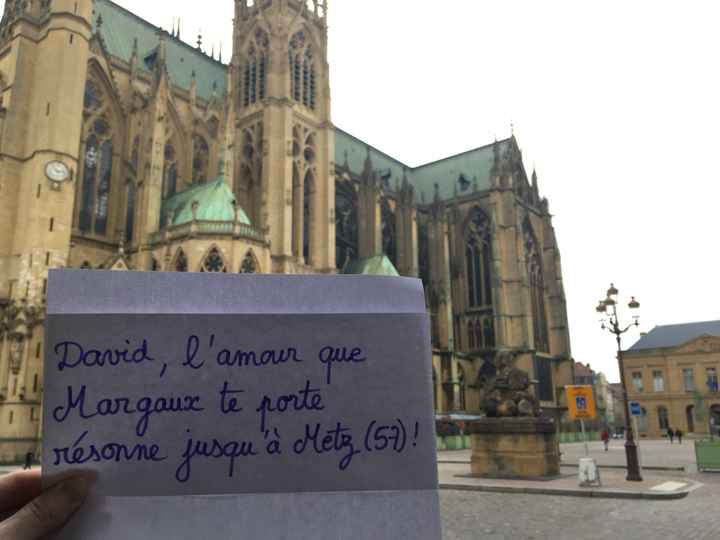 David, l'amour que
Margaux te porte
résonne jusqu'à Metz (57)!